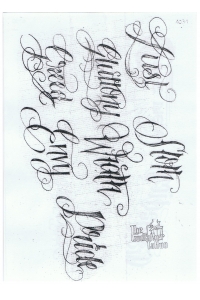 Lust
Gluttony
Greed
Sloth
Wrath
Envy
Pride
The
Tattoo